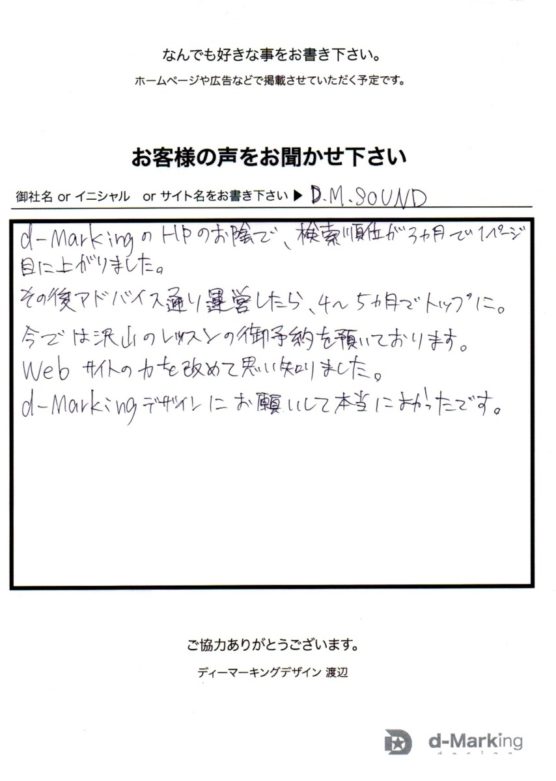 なんでも好きな事をお書き下さい。
ホームページや広告などで掲載させていただく予定です。
お客様の声をお聞かせ下さい
御社名 or イニシャル or サイト名をお書き下さい▶ D.M.SOUND
d-MarkingのHPのお陰で、検索順位が3ヵ月で1ページ
目に上がりました。
その後アドバイス通り運営したら、4~5ヵ月でトップに。
今では沢山のレッスンの御予約を頂いております。
Webサイトの力を改めて思い知りました。
d-Markingデザインにお願いして本当によかったです。
ご協力ありがとうございます。
ディーマーキングデザイン 渡辺
d-Marking
design